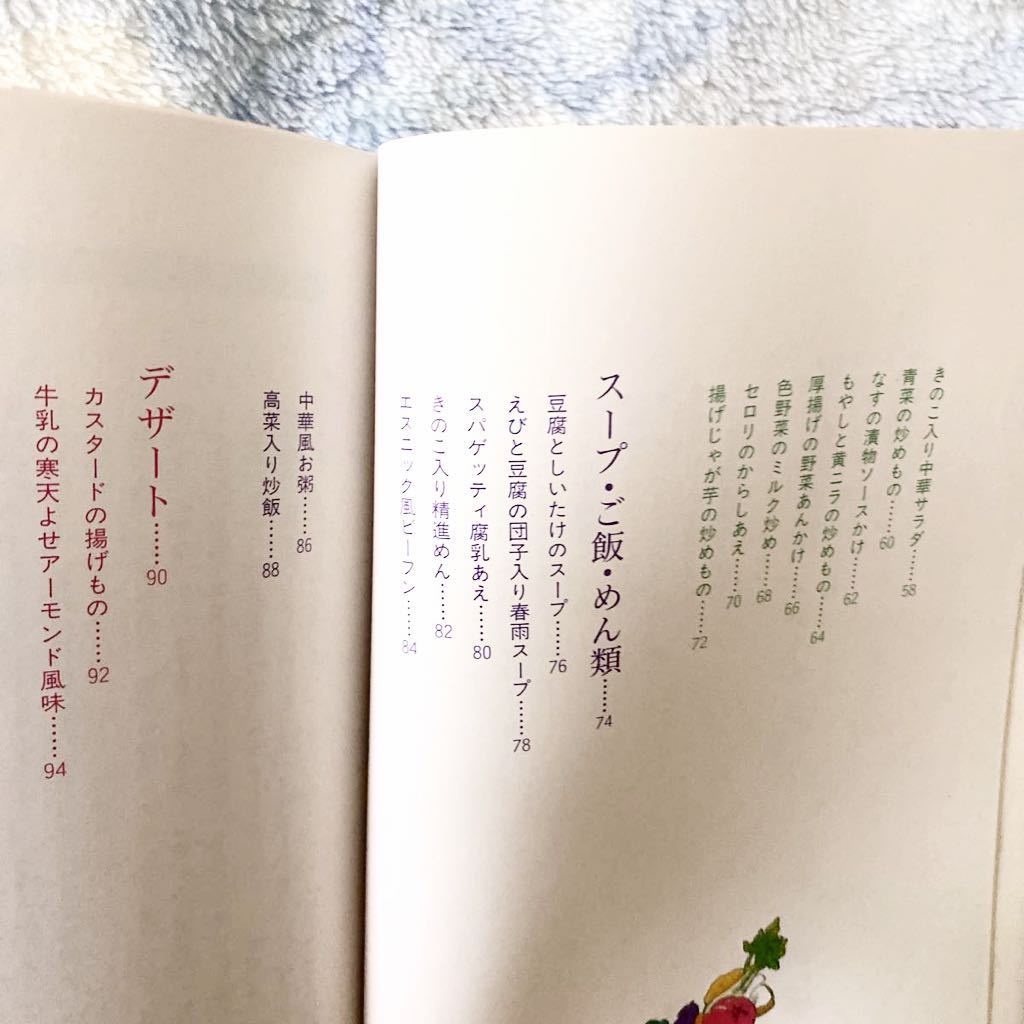 きのこ入り中華サラダ……58
青菜の炒めもの……60
なすの漬物ソースかけ……62
もやしと黄ニラの炒めもの……64
厚揚げの野菜あんかけ……66
色野菜のミルク炒め……68
セロリのからしあえ……70
揚げじゃが芋の炒めもの……72
スープ・ご飯・めん類……74
豆腐としいたけのスープ……76
えびと豆腐の団子入り春雨スープ……78
スパゲッティ腐乳あえ……80
きのこ入り精進めん……82
エスニック風ビーフン……84
中華風お粥……86
高菜入り炒飯……88
デザート……90
カスタードの揚げもの……92
牛乳の寒天よせアーモンド風味……94